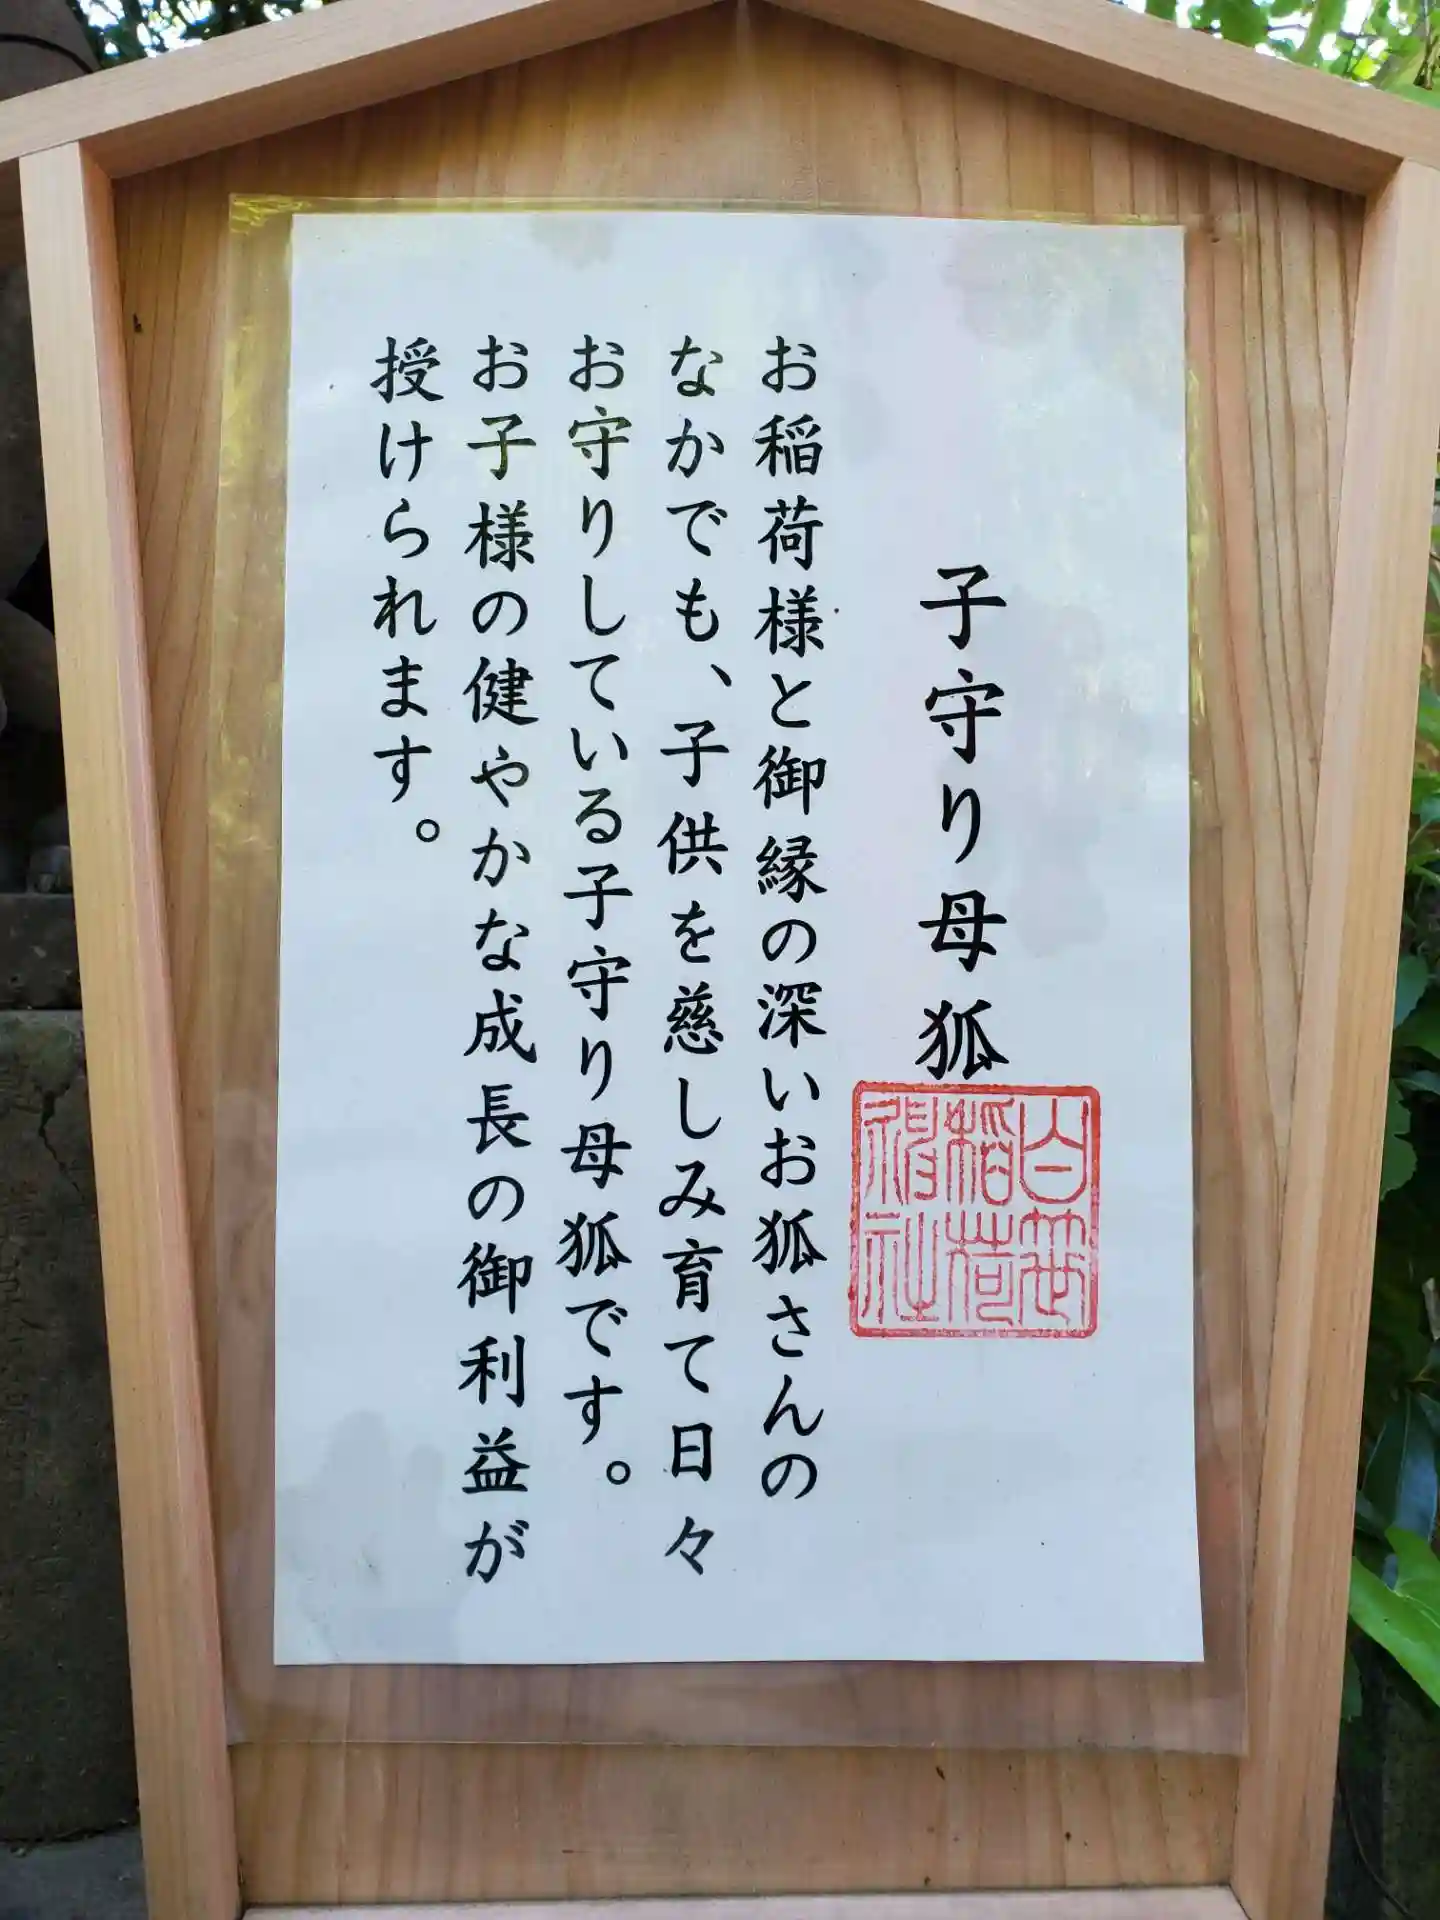 子守り母狐
白笹
稲荷
神社
お稲荷様と御縁の深いお狐さんの
なかでも、子供を慈しみ育て日々
お守りしている子守り母狐です。
お子様の健やかな成長の御利益が
授けられます。